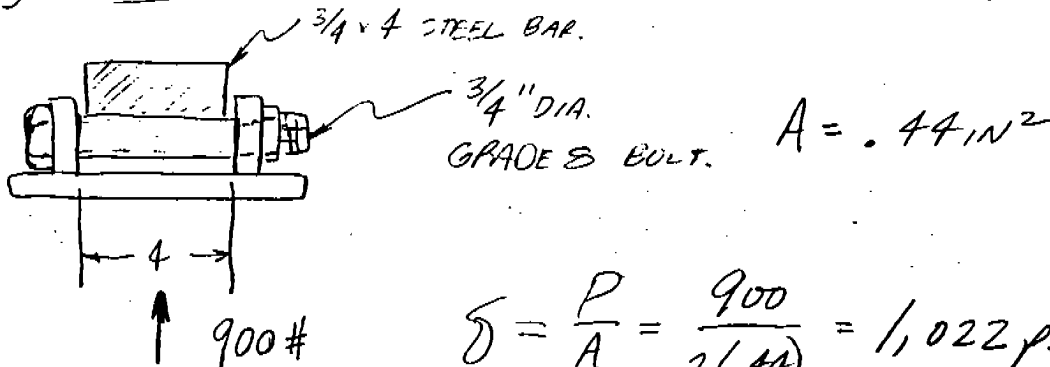 3/4 x 4 STEEL BAR.
3/4" DIA.
GRADE 8 BOLT.
A = .44 IN²
4
900#
δ = P/A = 900/2(.44) = 1,022 p